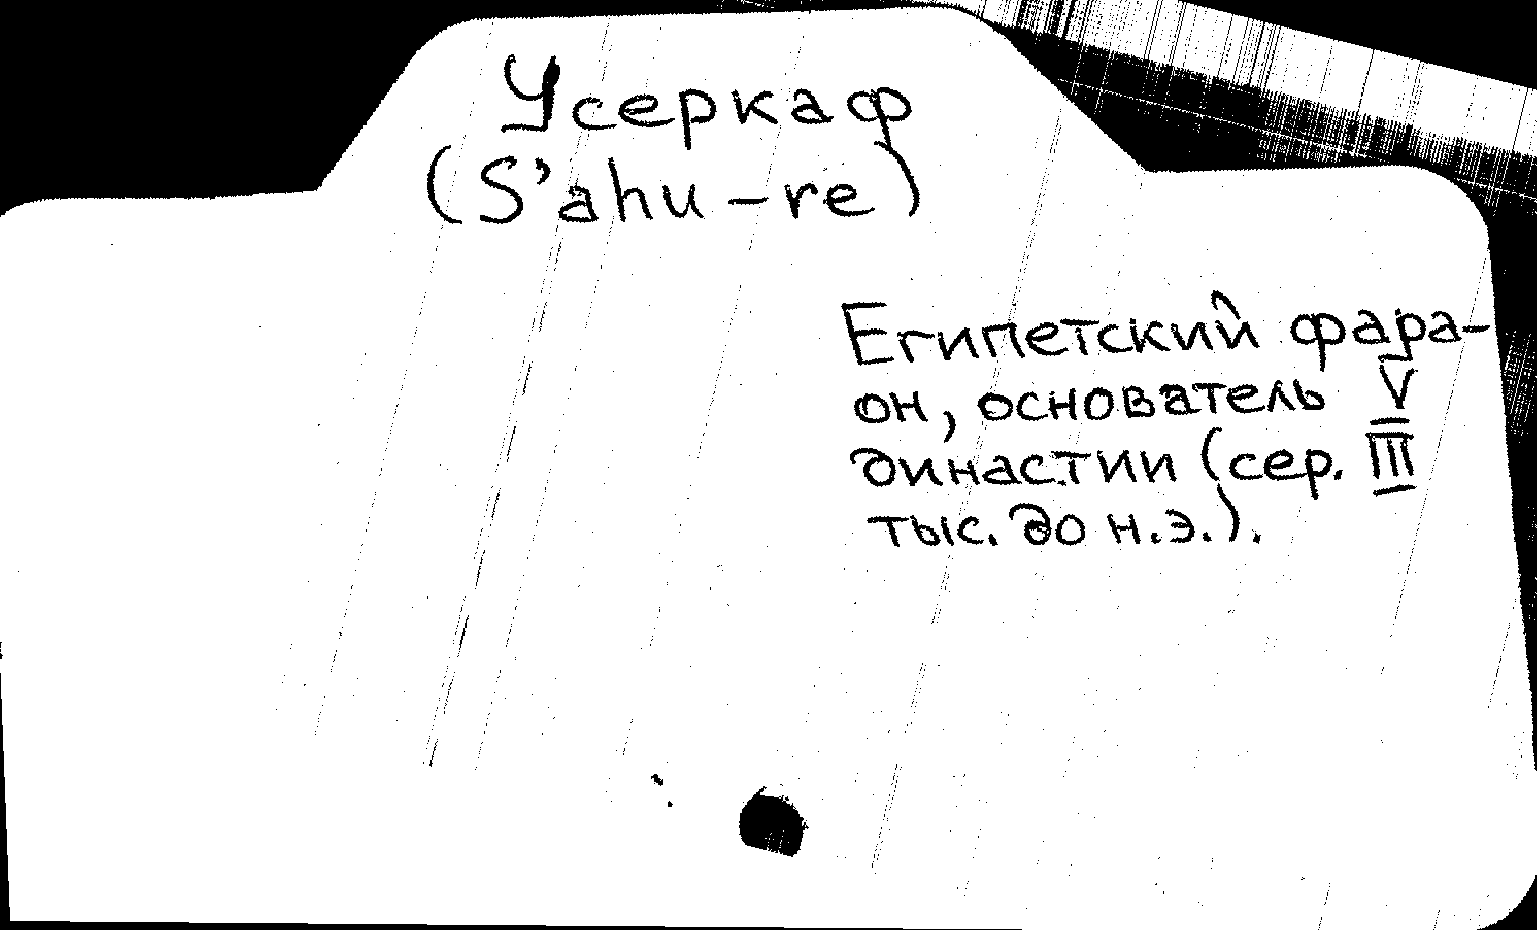 Усеркаф
(S'ahu-re)
Египетский фара-
он, основатель V
династии (сер. III
тыс. до н.э.).